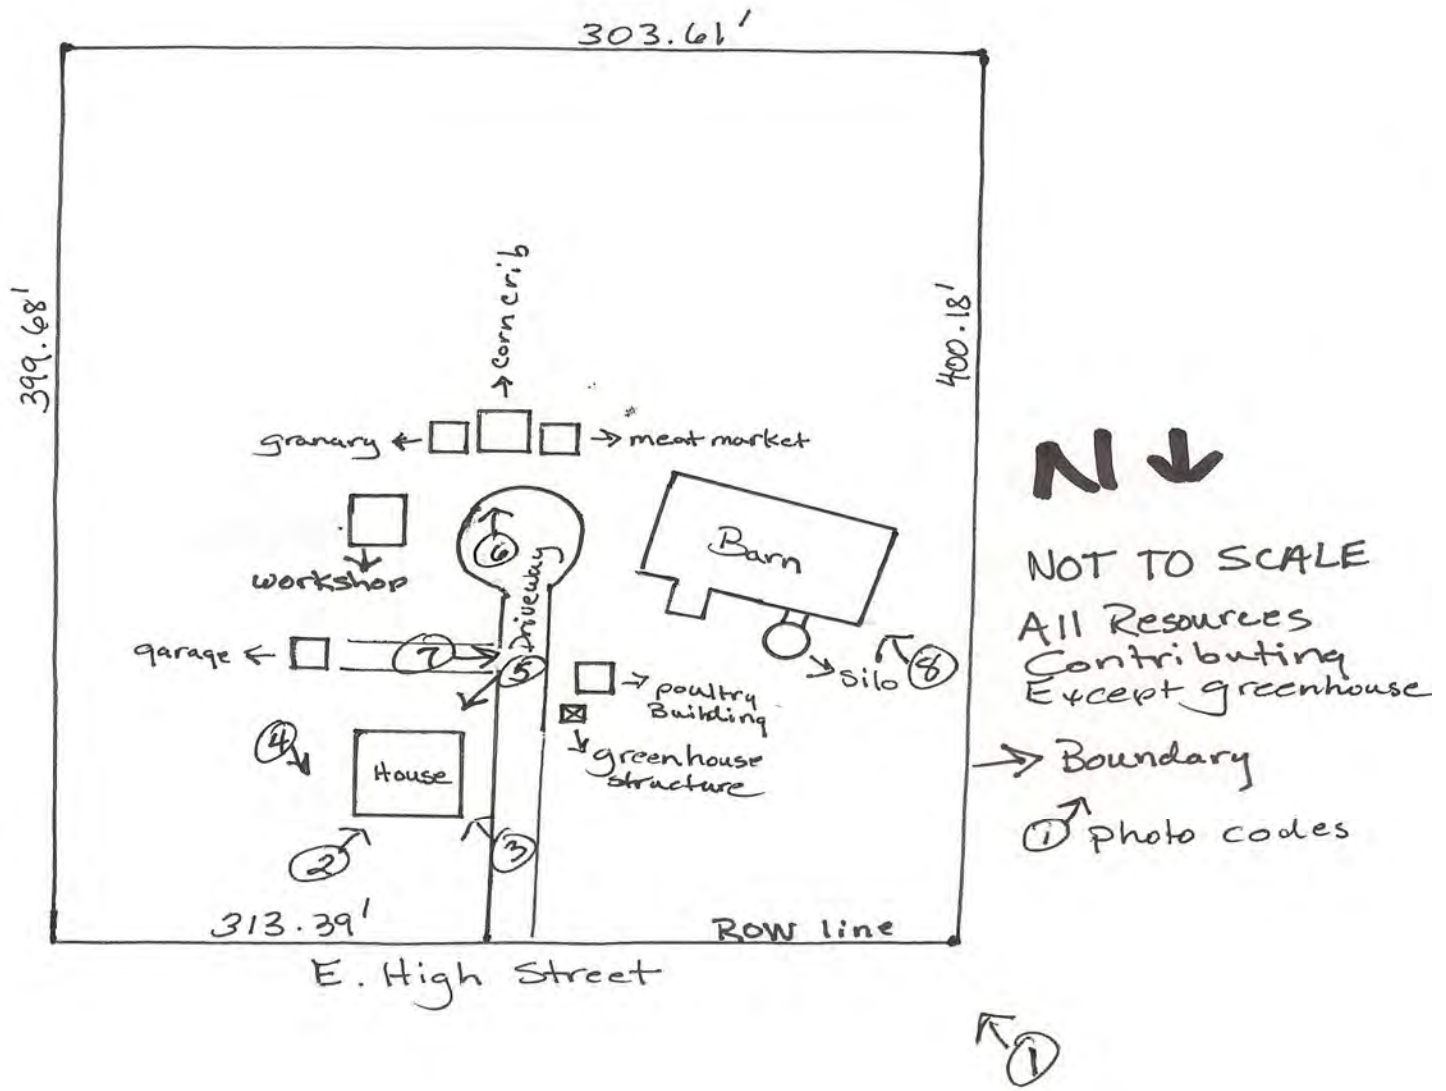 303.61'
399.68'
400.18'
corncrib
granary
meat market
workshop
Driveway
6
Barn
garage
7
5
Silo
8
poultry
Building
greenhouse
structure
4
House
2
3
313.39'
ROW line
E. High Street
1
N
NOT TO SCALE
All Resources
Contributing
Except greenhouse
Boundary
1 photo codes